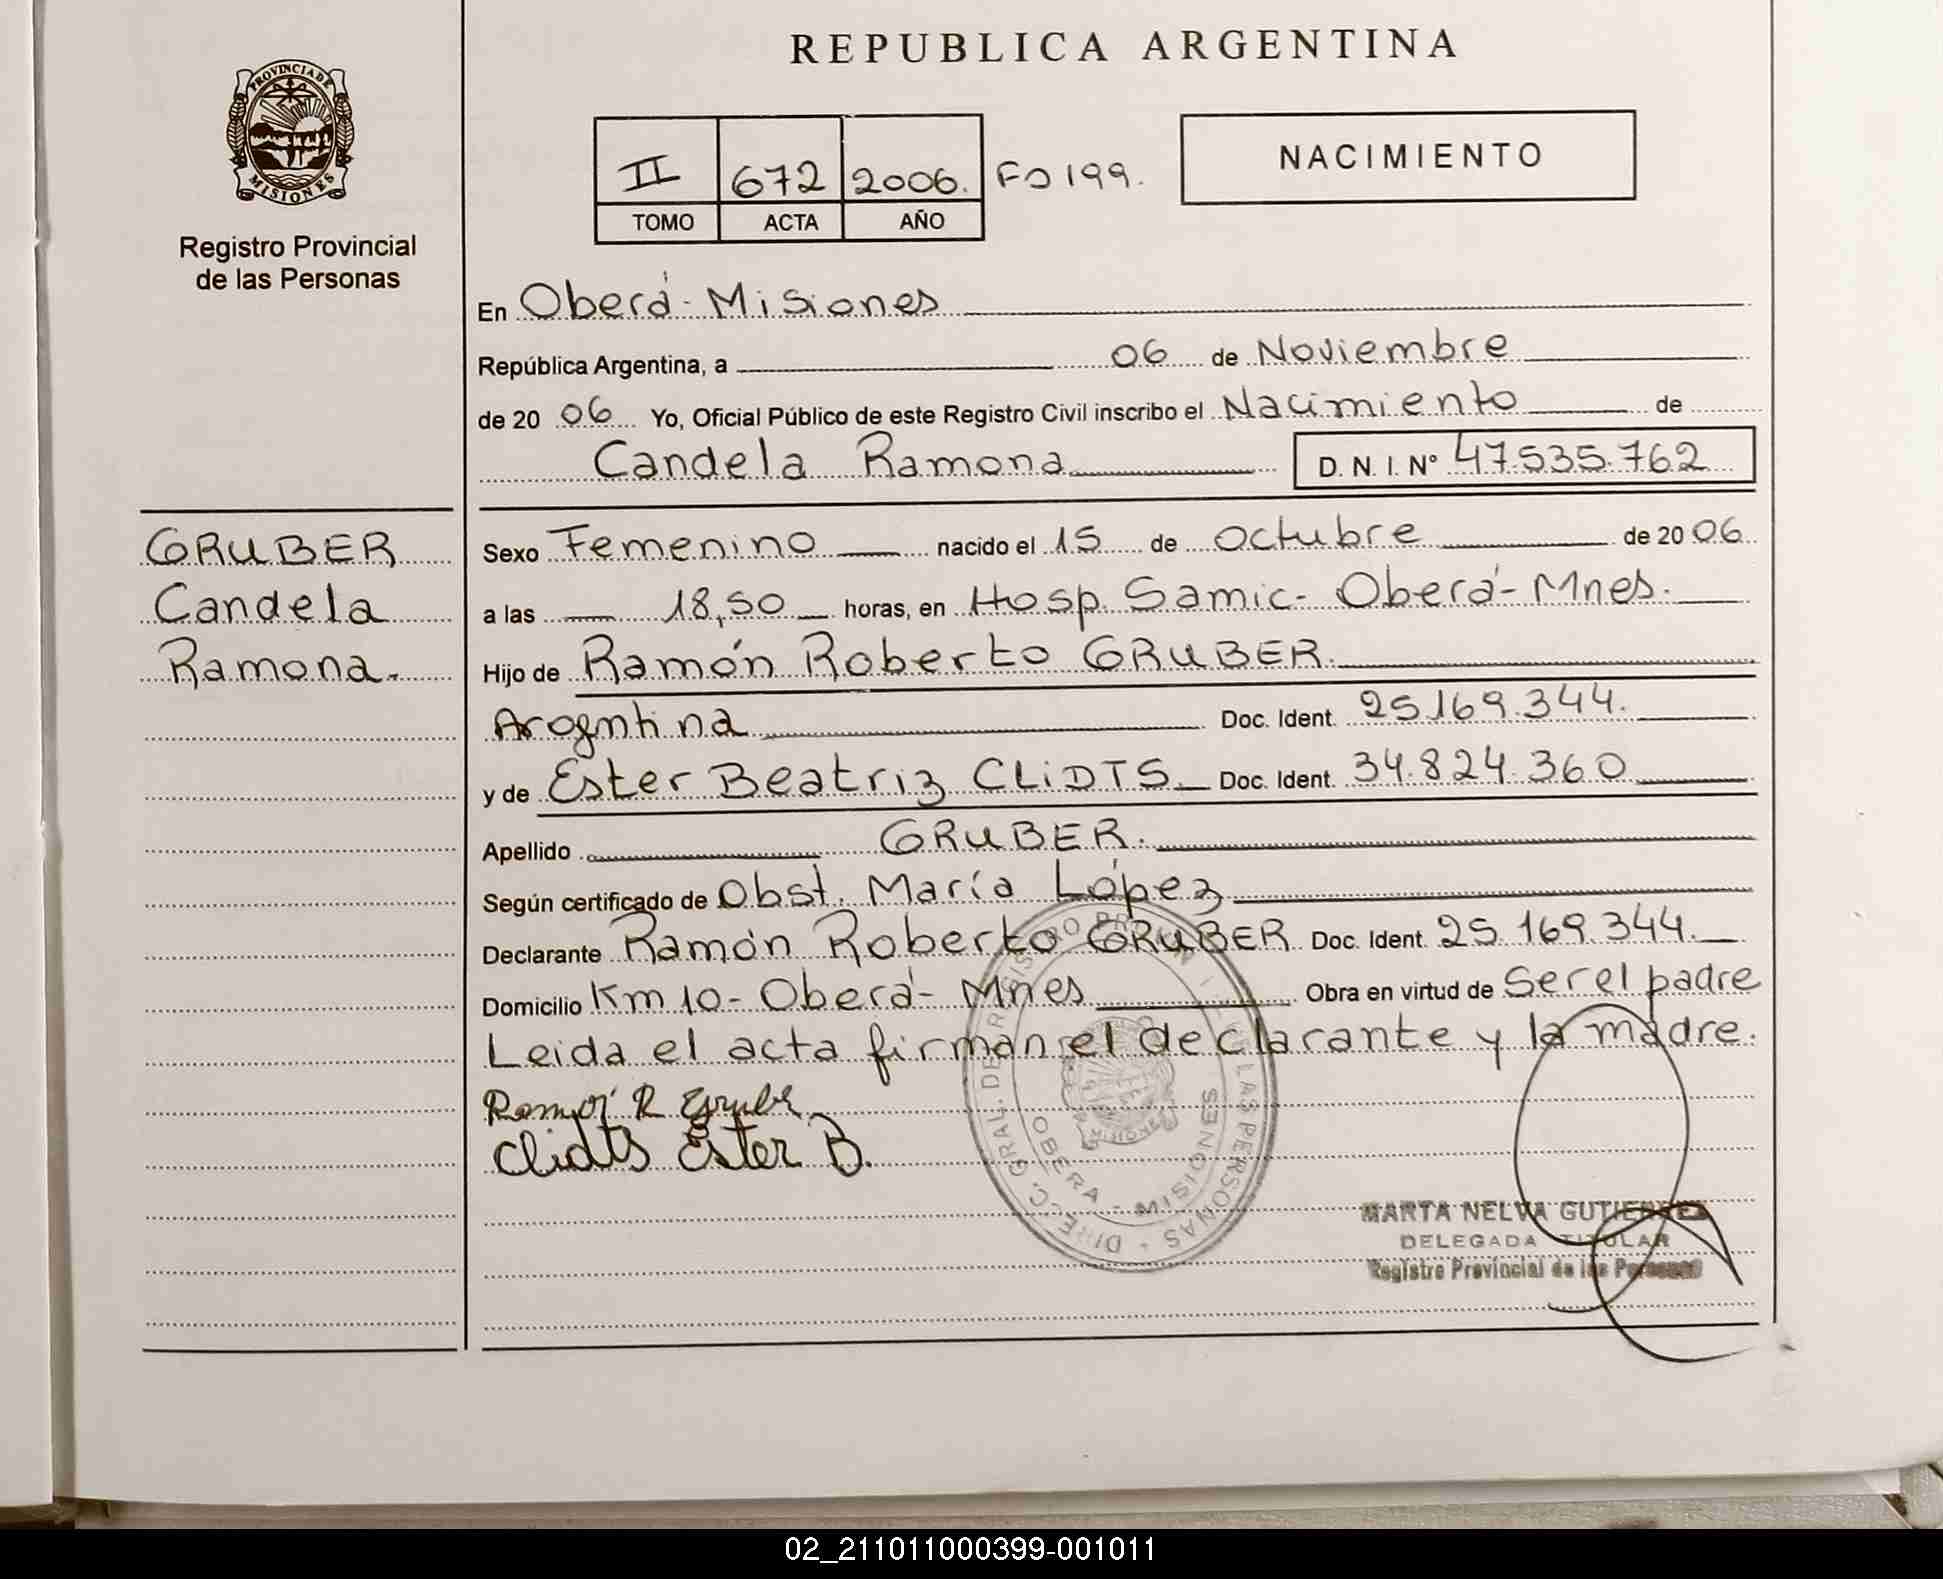 REPUBLICA ARGENTINA
PROVINCIA DE
MISIONES
Registro Provincial
de las Personas
II 672 2006. Fº 199.
TOMO ACTA AÑO
NACIMIENTO
En Oberá - Misiones
República Argentina, a 06 de Noviembre
de 20 06 Yo, Oficial Público de este Registro Civil inscribo el Nacimiento de
Candela Ramona D. N. I. Nº 47.535.762
GRUBER
Candela
Ramona.
Sexo Femenino nacido el 15 de Octubre de 20 06
a las 18,50 horas, en Hosp. Samic - Oberá - Mnes.
Hijo de Ramón Roberto GRUBER.
Arogntina Doc. Ident. 25.169.344.
y de Ester Beatriz CLiDTS. Doc. Ident. 34.824.360
Apellido GRUBER.
Según certificado de Obst. María López
Declarante Ramón Roberto GRUBER Doc. Ident. 25.169.344.
Domicilio Km 10 - Oberá - Mnes Obra en virtud de Ser el padre
Leida el acta firman el declarante y la madre.
Ramon R Gruber
Clidts Ester B.
DIRECC. GRAL. DE REGISTRO PROVINCIAL DE LAS PERSONAS
OBERA - MISIONES
MARTA NELVA GUTIERREZ
DELEGADA TITULAR
Registro Provincial de las Personas
02_211011000399-001011